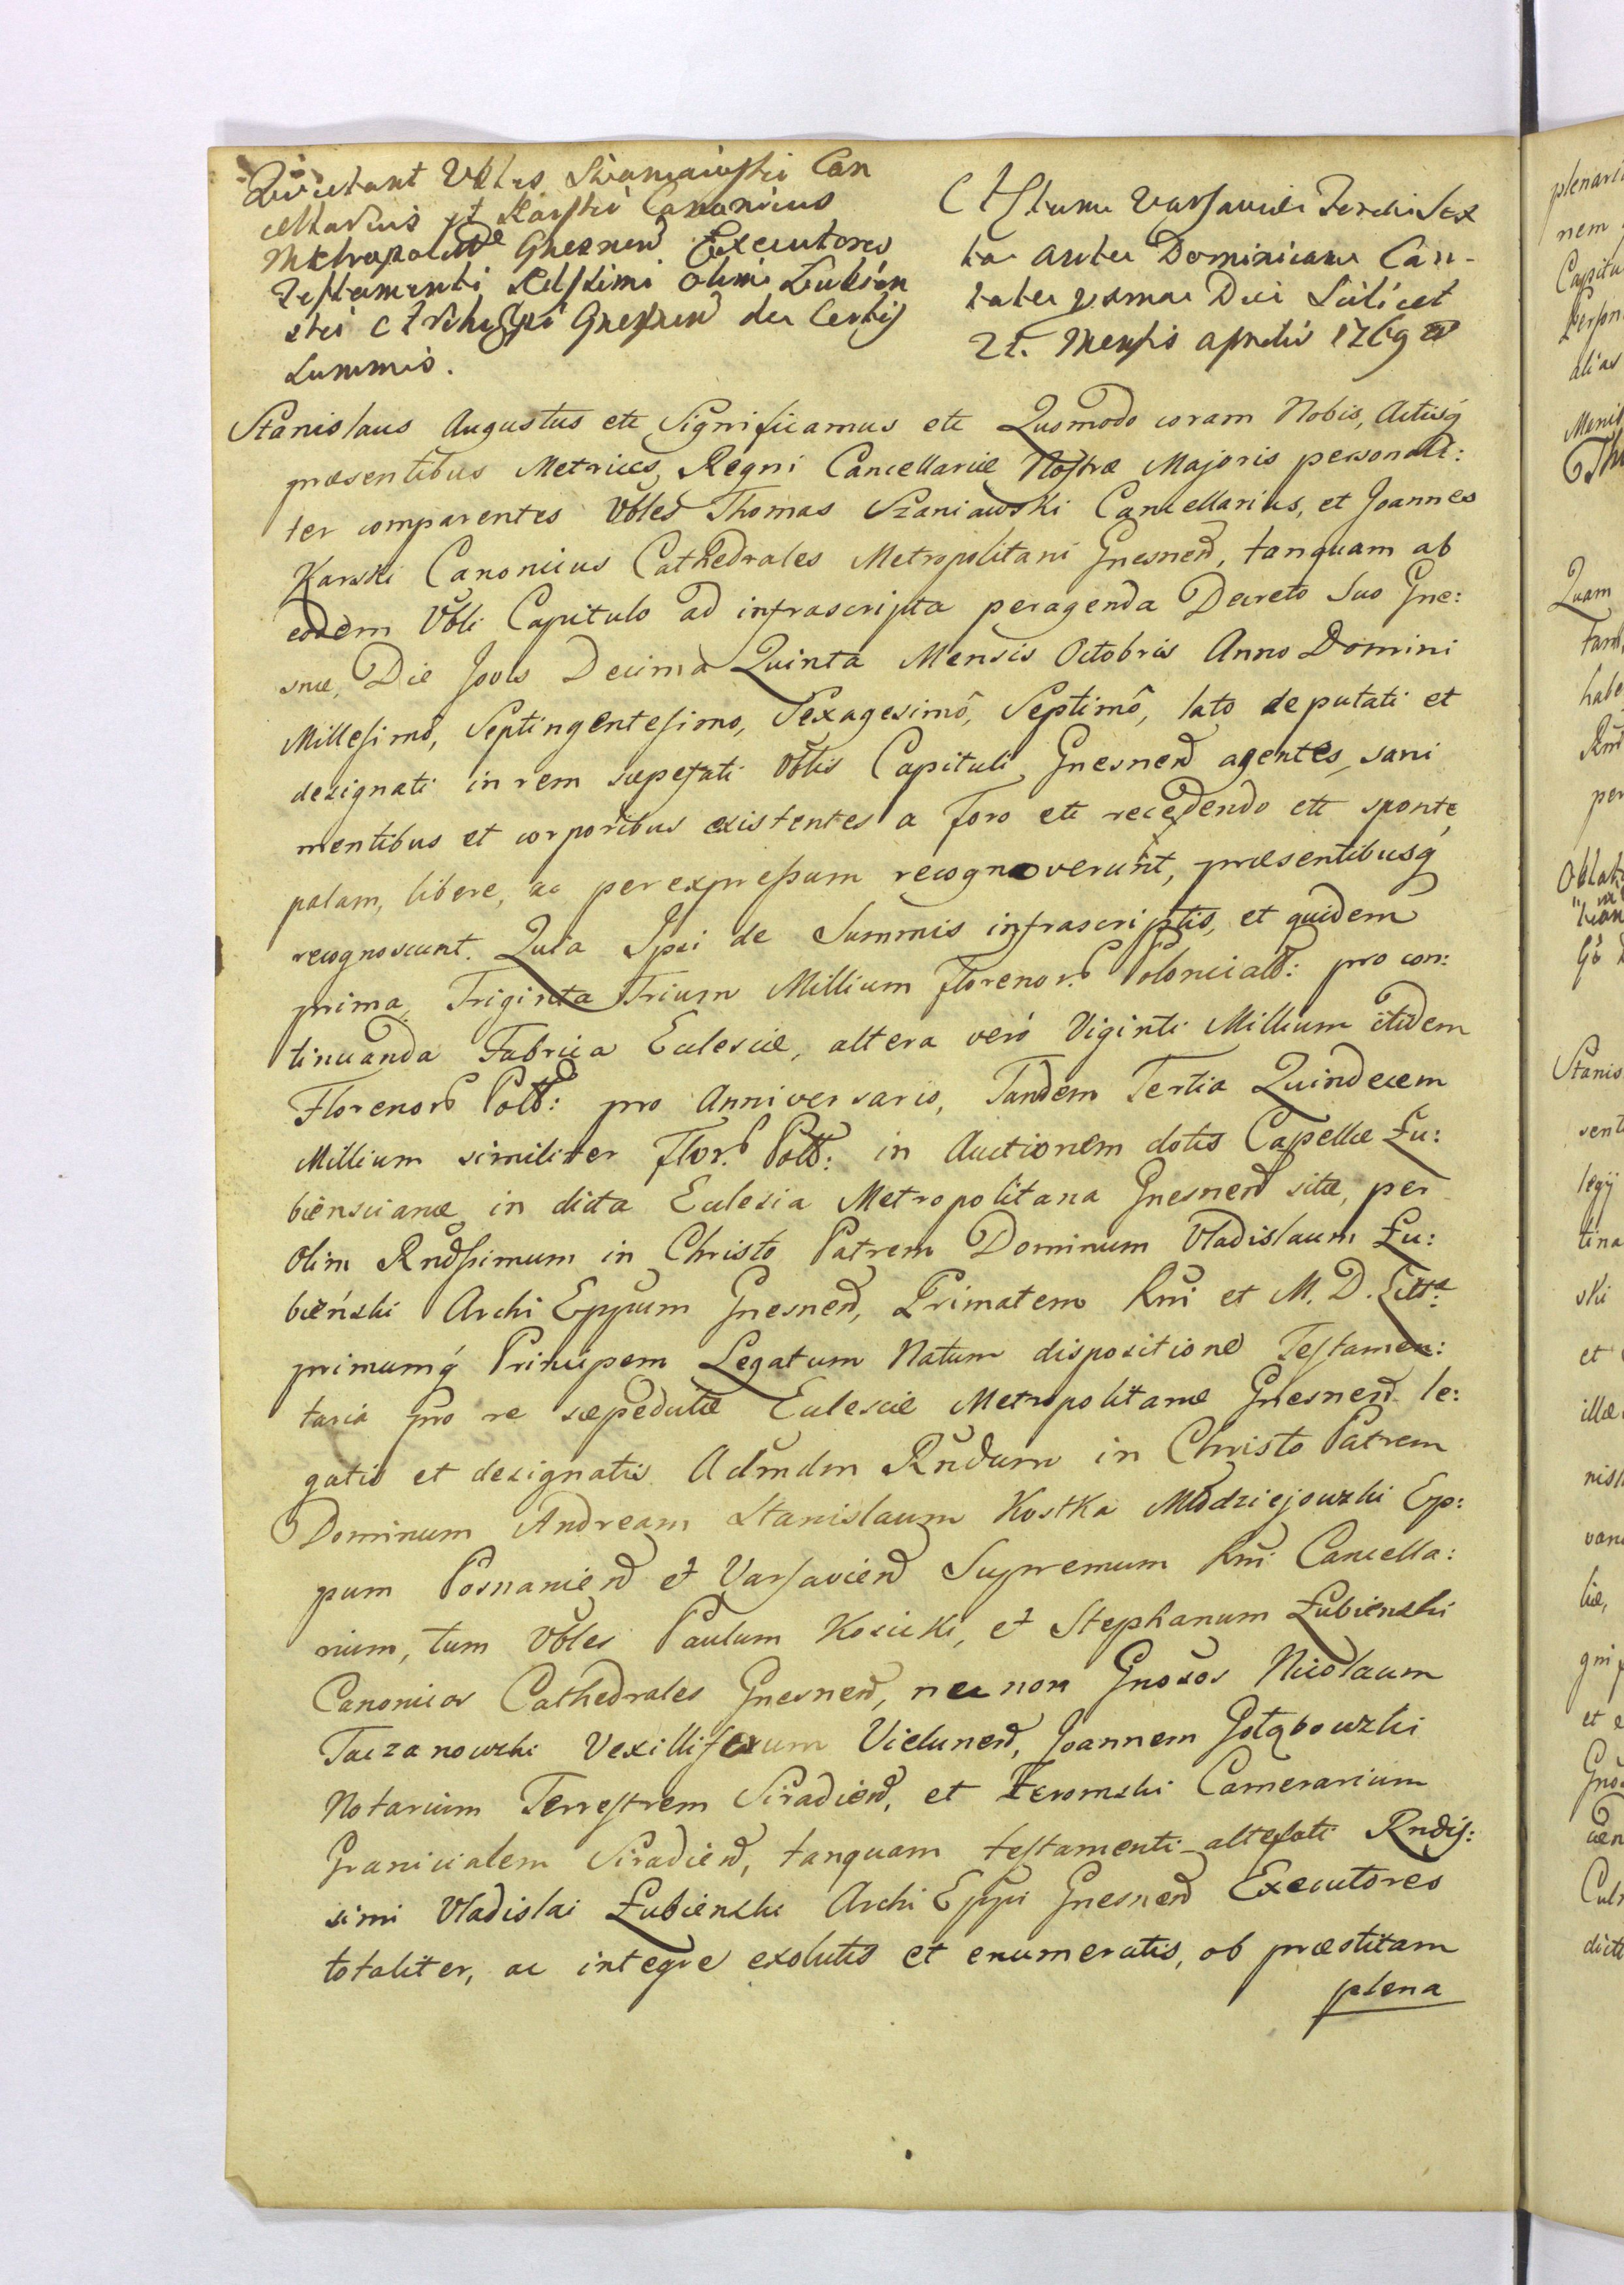 Quietant Vbles Szaniawski Can
cellarius et Karski Canonicus
Metropolit Gnesnen Executores
Testamenti Celssimi olim Łubień
ski Archi Eppi Gnesnen de Certis
Summis.
Actum Varsaviæ Feria Sex
ta ante Dominicam Can-
tate proxima Die Scilicet
21. Mensis Aprilis 1769
Stanislaus Augustus ett Significamus ett Quomodo coram Nobis, Actisq́
præsentibus Metrices Regni Cancellariæ Nostræ Majoris personali:
ter comparentes Vbles Thomas Szaniawski Cancellarius, et Joannes
Karski Canonicus Cathedrales Metropolitani Gnesnen, tanquam ab
eodem Vbli Capitulo ad infrascripta peragenda Decreto suo Gne:
snæ, Die Jovis Decima Quinta Mensis Octobris Anno Domini
Millesimô, Septingentesimo, Sexagesimô, Septimô, lato deputati et
designati in rem sæpefati Vblis Capituli Gnesnen agentes, sani
mentibus et corporibus existentes a foro ett recedendo ett sponte,
palam, libere, ac per expressum recognoverunt, præsentibusq́
recognoscunt. Quia Ipsi de Summis infrascriptis, et quidem
prima, Triginta Trium Millium florenor. Polonicali: pro con:
tinuanda Fabrica Ecclesiæ, altera verò Viginti Millium itidem
Florenor Poll: pro Anniversario, Tandem Tertia Quindecem
Millium similiter flor. Poll: in Auctionem dotis Capellæ Łu:
bienscianæ in dicta Ecclesia Metropolitana Gnesnen sitæ, per
olim Rndssimum in Christo Patrem Dominum Vladislaum Łu:
bieński Archi Eppum Gnesnen, Primatem Rni et M. D. Litt:
primumq́ Principem Legatum Natum dispositione Testamen:
taria pro re sæpedictæ Ecclesiæ Metropolitanæ Gnesnen le:
gatis et designatis Admdm Rndum in Christo Patrem
Dominum Andream Stanislaum Kostka Młodziejowski Ep:
pum Posnanien et Varsavien Supremum Rni Cancella:
rium, tum Vbles Paulum Kosicki, et Stephanum Łubienski
Canonicos Cathedrales Gnesnen, nec non Gnosos Nicolaum
Taczanowski Vexilliferum Vielunen, Joannem Gołąbowski
Notarium Terrestrem Siradien, et Żeromski Camerarium
Granicialem Siradien, tanquam testamenti altefati Rndis:
simi Vladislai Łubienski Archi Eppi Gnesnen Executores
totaliter, ac integre exolutis et enumeratis, ob præstitam
plena